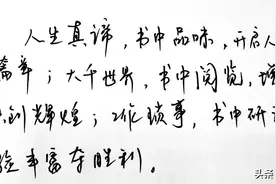 人生真谛，书中品味，开启人
篇章；大千世界，书中阅览，增
识到辉煌；工作琐事，书中研讨
验丰富夺胜利。
头条